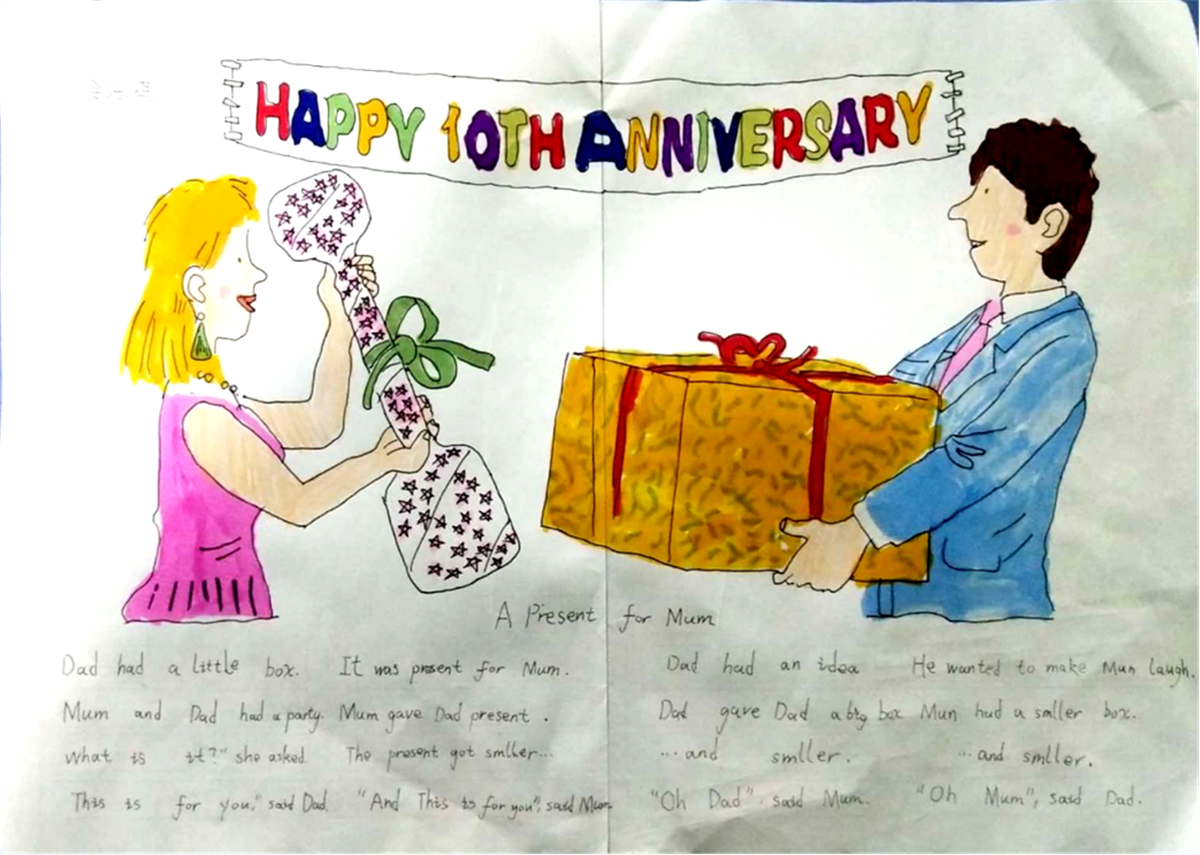 HAPPY 10TH ANNIVERSARY
A Present for Mum
Dad had a little box. It was present for Mum. Dad had an idea He wanted to make Mum laugh.
Mum and Dad had a party. Mum gave Dad present. Dad gave Dad a big box Mun had a smller box.
What is it?" she asked. The present got smller... ...and smller. ...and smller.
This is for you," said Dad. "And This is for you", said Mum. "Oh Dad". said Mum. "Oh Mum", said Dad.